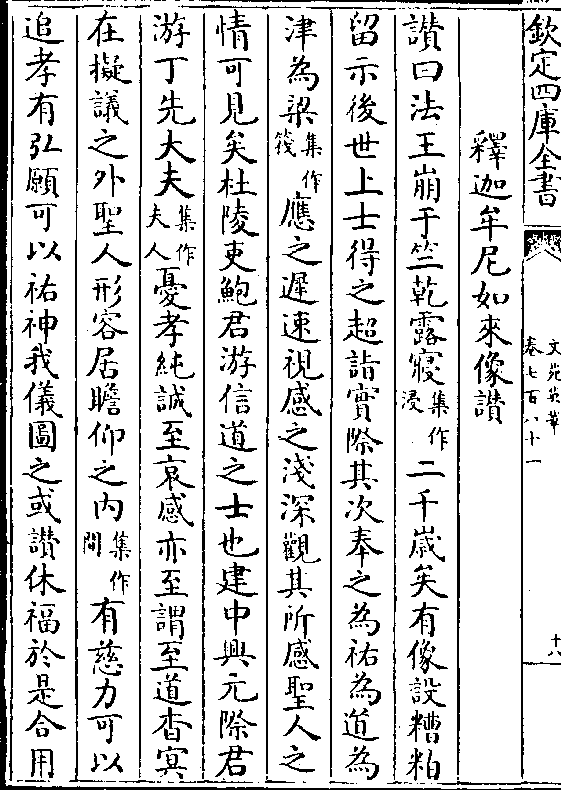 欽定四庫全書
文苑英華
卷七百八十一
十八
釋迦牟尼如來像讃
讃曰法王崩于竺乾露寢集作浸二千嵗矣有像設糟粕
留示後世上士得之超詣實際其次奉之為祐為道為
津為梁集作筏應之遲速視感之淺深觀其所感聖人之
情可見矣杜陵吏鮑君游信道之士也建中興元際君
游丁先大夫集作夫人憂孝純誠至哀感亦至謂至道杳冥
在擬議之外聖人形容居瞻仰之内集作間有慈力可以
追孝有弘願可以祐神我儀圖之或讃休福於是合用